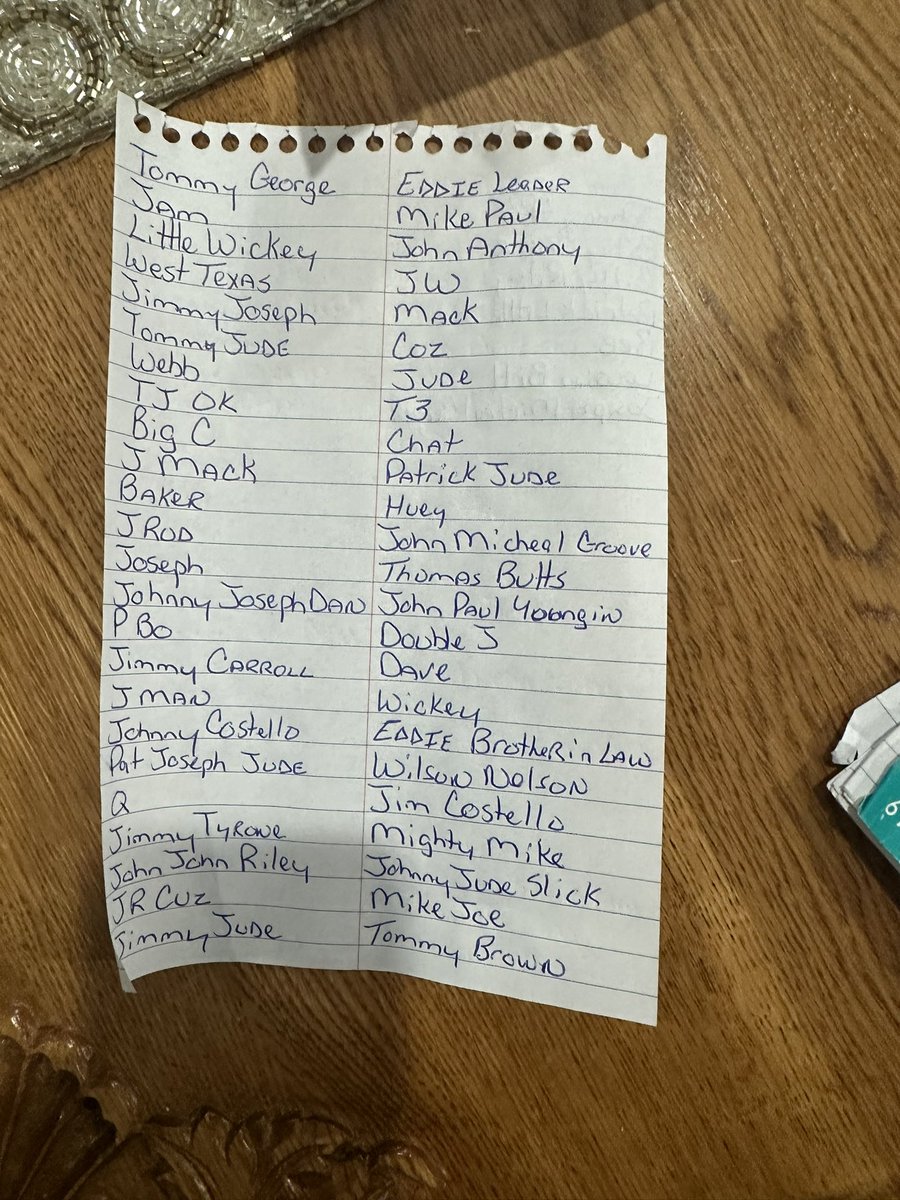 Tommy George
JAM
Little Wickey
West Texas
Jimmy Joseph
Tommy JUDE
Webb
TJ OK
Big C
J MACK
BAKER
J ROD
Joseph
Johnny Joseph DAN
P Bo
Jimmy CARROLL
J MAN
Johnny Costello
Pat Joseph JUDE
Q
Jimmy Tyrone
John John Riley
JR Cuz
Jimmy JUDE
EDDIE Leader
Mike Paul
John Anthony
JW
Mack
Coz
Jude
T3
Chat
Patrick Jude
Huey
John Micheal Groove
Thomas Butts
John Paul Yoongin
Double J
Dave
Wickey
EDDIE Brother in LAW
Wilson Nelson
Jim Costello
Mighty Mike
Johnny Jude Slick
Mike Joe
Tommy Brown